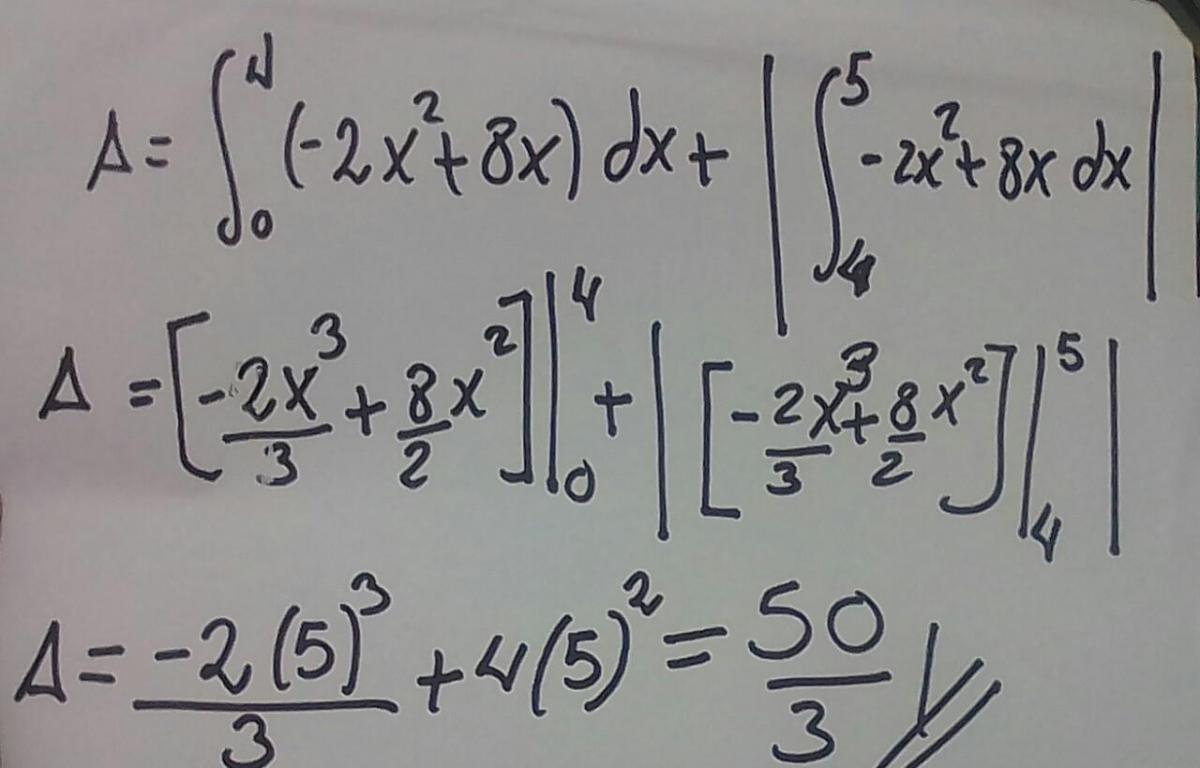 A = ∫₀⁴ (-2x² + 8x) dx + | ∫₄⁵ -2x² + 8x dx |
A = [ -2x³/3 + 8/2 x² ] |₀⁴ + | [ -2/3 x³ + 8/2 x² ] |₄⁵ |
A = -2(5)³/3 + 4(5)² = 50/3